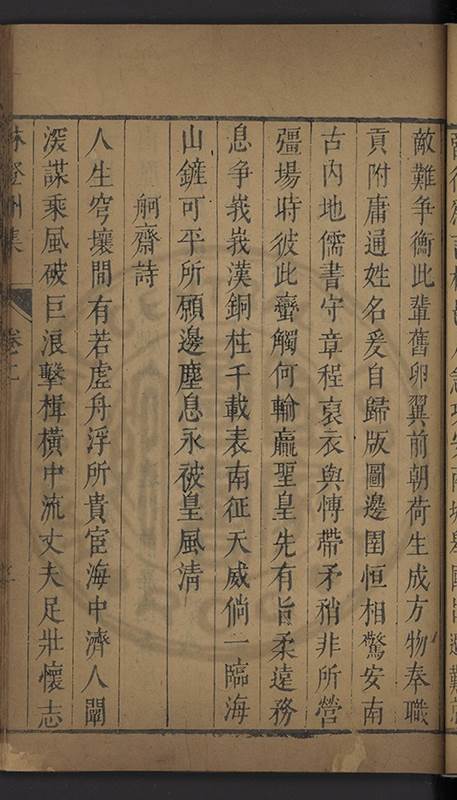 敵難爭衡此輩舊卵翼前朝荷生成方物奉職
貢附庸通姓名爰自歸版圖邊圉恒相驚安南
古內地儒書守章程裒衣與愽帶矛矟非所營
彊場時彼此蠻觸何輸贏聖皇先有旨柔遠務
息爭峩峩漢銅柱千載表南征天威倘一臨海
山鏟可平所願邊塵息永被皇風清
舸齋詩
人生穹壤間有若虛舟浮所貴宦海中濟人闡
深謀乘風破巨浪擊楫橫中流丈夫足壯懷志
集
卷